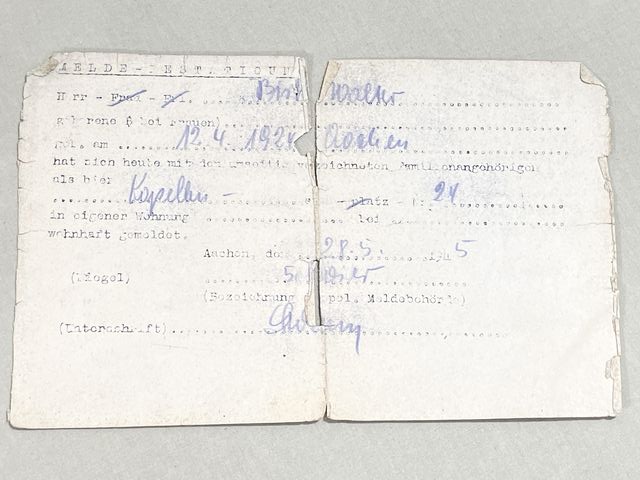 MELDE-BESTÄTIGUN
Herr - Frau - Frl.
geborene (bei Frauen)
geb. am 12.4.1924 Aachen
hat sich heute mit den umseitig verzeichneten Familienangehörigen
als hier
Kapellen- platz - 24
in eigener Wohnung bei
wohnhaft gemeldet.
Aachen, den 28.5. 1945
(Siegel)
(Bezeichnung pol. Meldebehörde)
(Unterschrift)